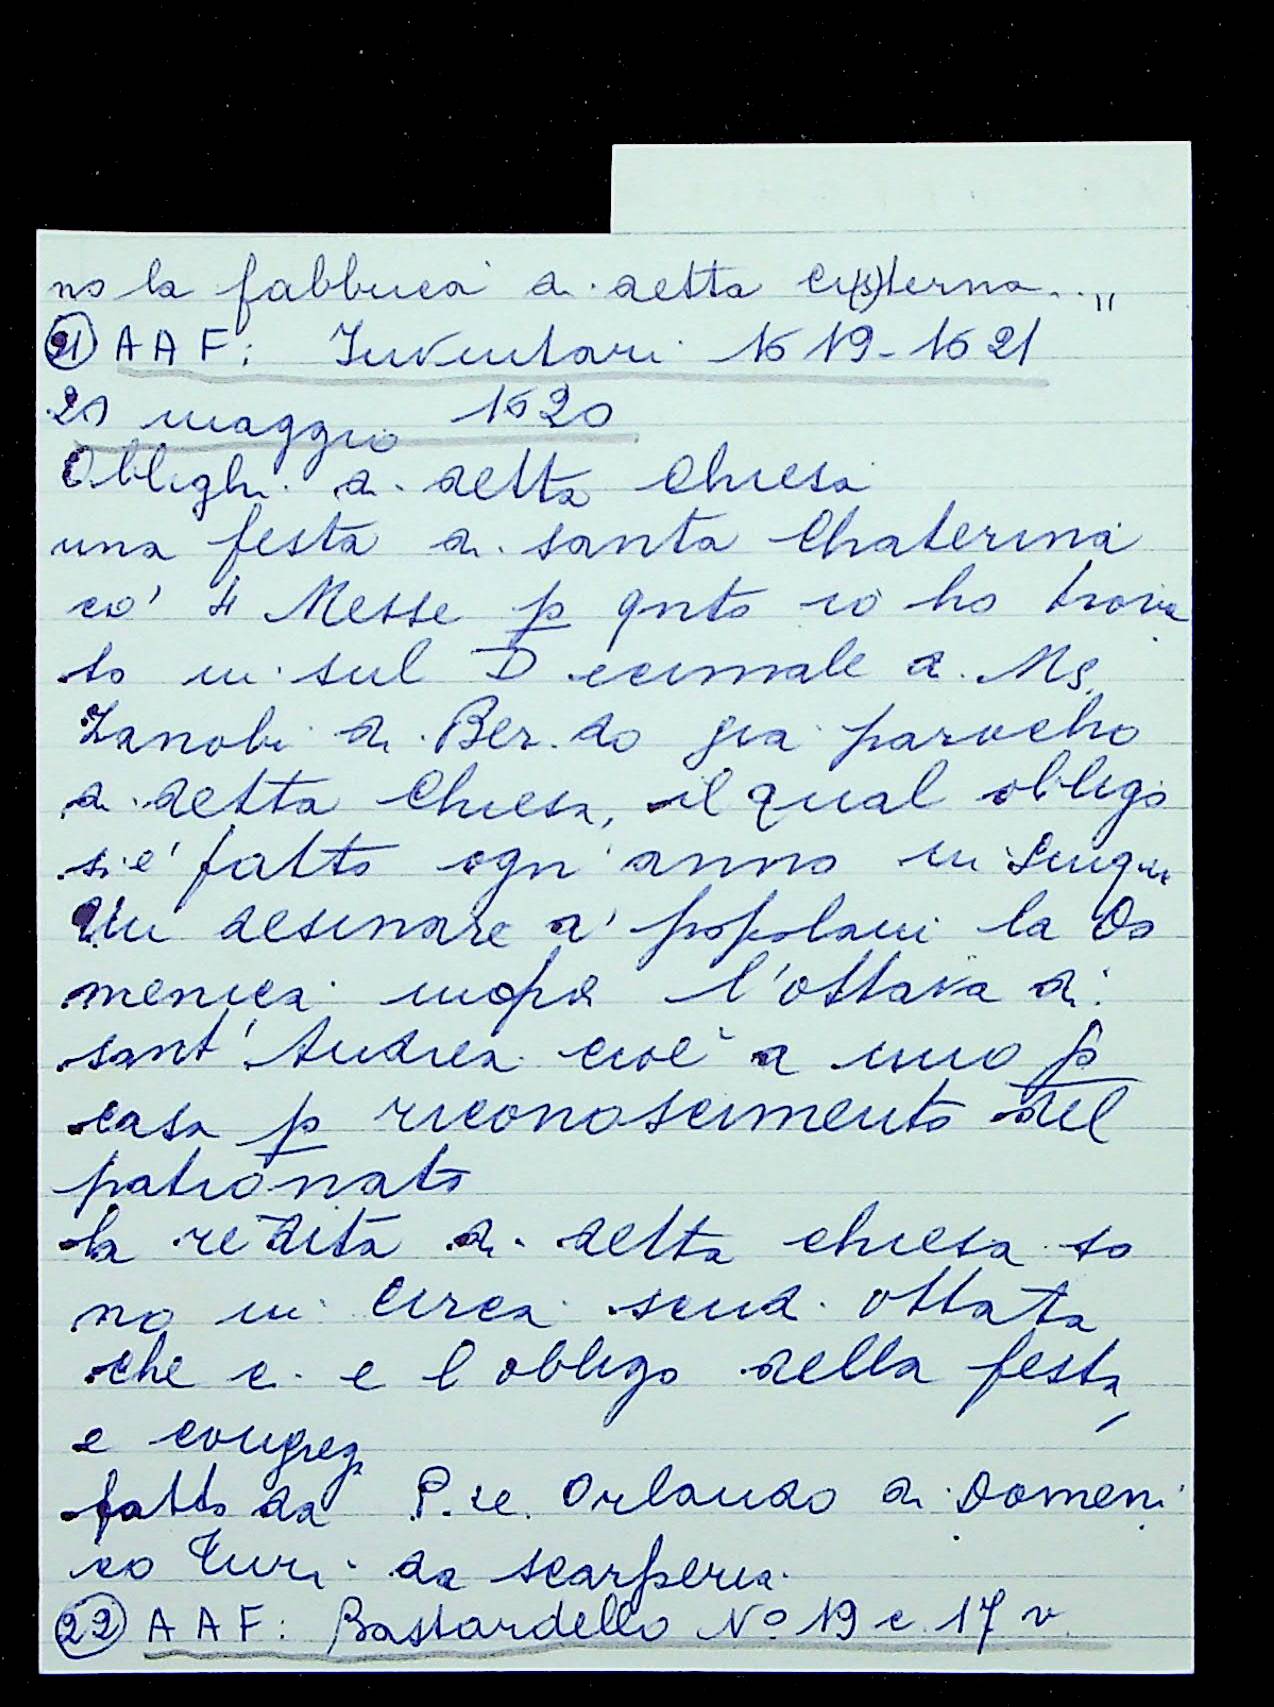 no la fabbrica di detta ci(s)terna..."
21 AAF: Inventari 1619-1621
20 maggio 1620
Oblighi di detta Chiesa
una festa di santa Chaterina
co' 4 Messe p qnto io ho trova
to in sul Decimale d. Ms.
Zanobi di Ber.do gia parocho
di detta Chiesa, il qual obligo
si e' fatto ogn'anno in
Un desinare a' popolani la Do
menica l'ottava di
sant'Andrea cioè a uno p
casa p riconoscimento del
patronato
la redita di detta chiesa so
no in circa scudi ottata
che ci e l obligo della festa,
e congreg.
fatto da P.re Orlando di Domeni
co Turi da Scarperia.
22 AAF: Bastardello Nº 19 c. 17 v.